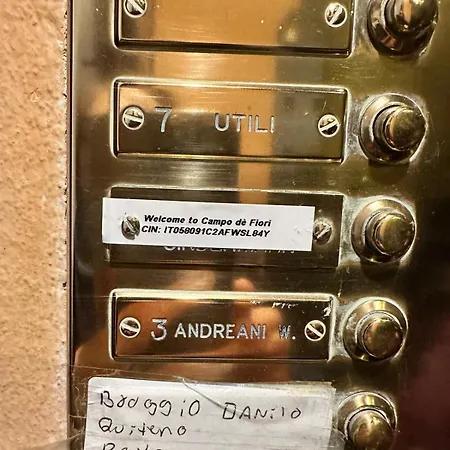 7 UTILI
Welcome to Campo dè Fiori
CIN: IT058091C2AFWSL84Y
3 ANDREANI W.
Baggio Danilo